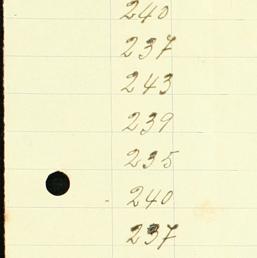 240
237
243
239
235
240
237